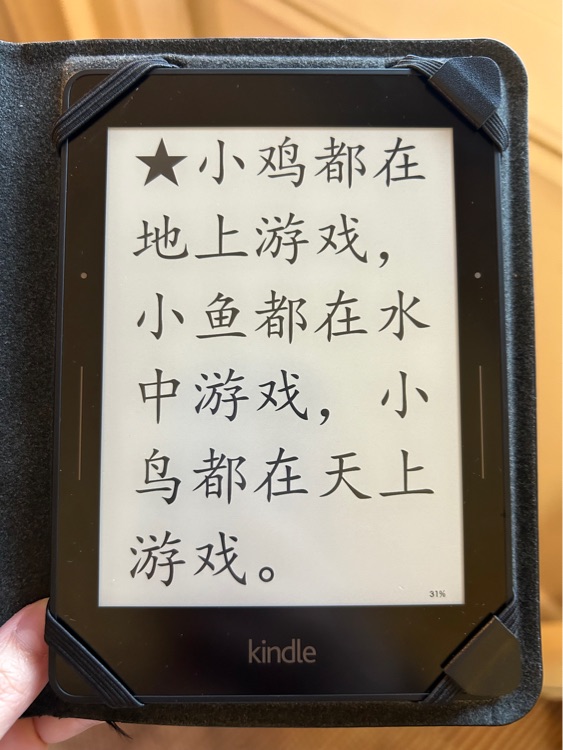 ★小鸡都在
地上游戏，
小鱼都在水
中游戏，小
鸟都在天上
游戏。
31%
kindle